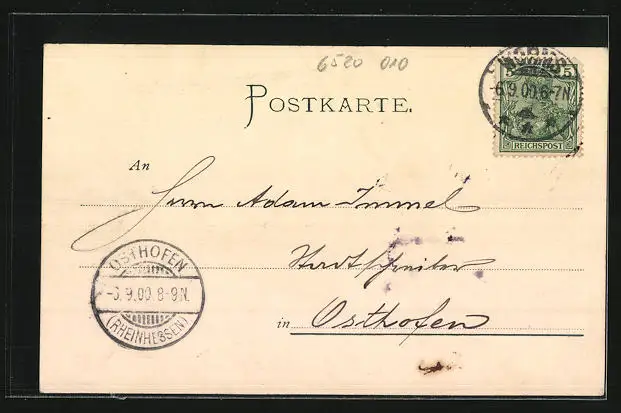 6520 010
WORMS
-6.9.00.6-7N.
5 5
REICHSPOST
POSTKARTE.
An
Herrn Adam Immel
Stadtschreiber
in Osthofen
OSTHOFEN
-6.9.00.8-9N.
(RHEINHESSEN)